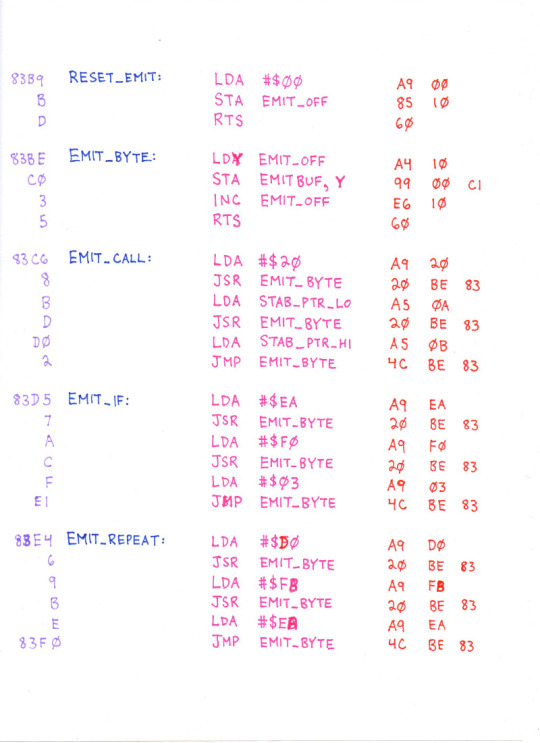 83B9 RESET_EMIT: LDA #$ØØ A9 ØØ
B STA EMIT_OFF 85 1Ø
D RTS 6Ø
83BE EMIT_BYTE: LDY EMIT_OFF A4 1Ø
CØ STA EMITBUF,Y 99 ØØ C1
3 INC EMIT_OFF E6 1Ø
5 RTS 6Ø
83C6 EMIT_CALL: LDA #$2Ø A9 2Ø
8 JSR EMIT_BYTE 2Ø BE 83
B LDA STAB_PTR_LO A5 ØA
D JSR EMIT_BYTE 2Ø BE 83
DØ LDA STAB_PTR_HI A5 ØB
2 JMP EMIT_BYTE 4C BE 83
83D5 EMIT_IF: LDA #$EA A9 EA
7 JSR EMIT_BYTE 2Ø BE 83
A LDA #$FØ A9 FØ
C JSR EMIT_BYTE 2Ø BE 83
F LDA #$Ø3 A9 Ø3
E1 JMP EMIT_BYTE 4C BE 83
83E4 EMIT_REPEAT: LDA #$DØ A9 DØ
6 JSR EMIT_BYTE 2Ø BE 83
9 LDA #$FB A9 FB
B JSR EMIT_BYTE 2Ø BE 83
E LDA #$EA A9 EA
83FØ JMP EMIT_BYTE 4C BE 83